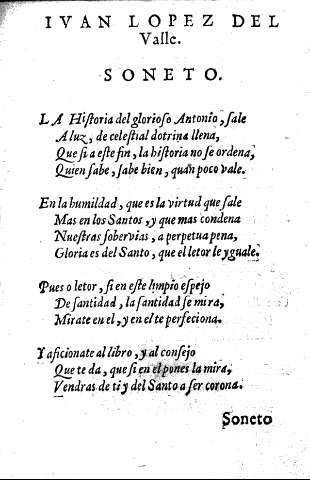 IVAN LOPEZ DEL
Valle.
SONETO.
LA Hiſtoria del glorioſo Antonio, ſale
A luz, de celeſtial dotrina llena,
Que ſi a eſte fin, la hiſtoria no ſe ordena,
Quien ſabe, ſabe bien, quan poco vale.
En la humildad, que es la virtud que ſale
Mas en los Santos, y que mas condena
Nueſtras ſobervias, a perpetua pena,
Gloria es del Santo, que el letor le yguale.
Pues o letor, ſi en eſte limpio eſpejo
De ſantidad, la ſantidad ſe mira,
Mirate en el, y en el te perfeciona.
Y aficionate al libro, y al conſejo
Que te da, que ſi en el pones la mira,
Vendras de ti y del Santo a ſer corona.
Soneto